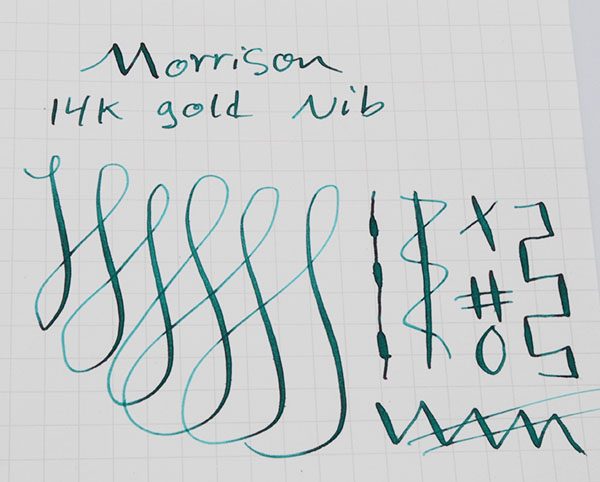 Morrison
14K gold Nib
X
#
O